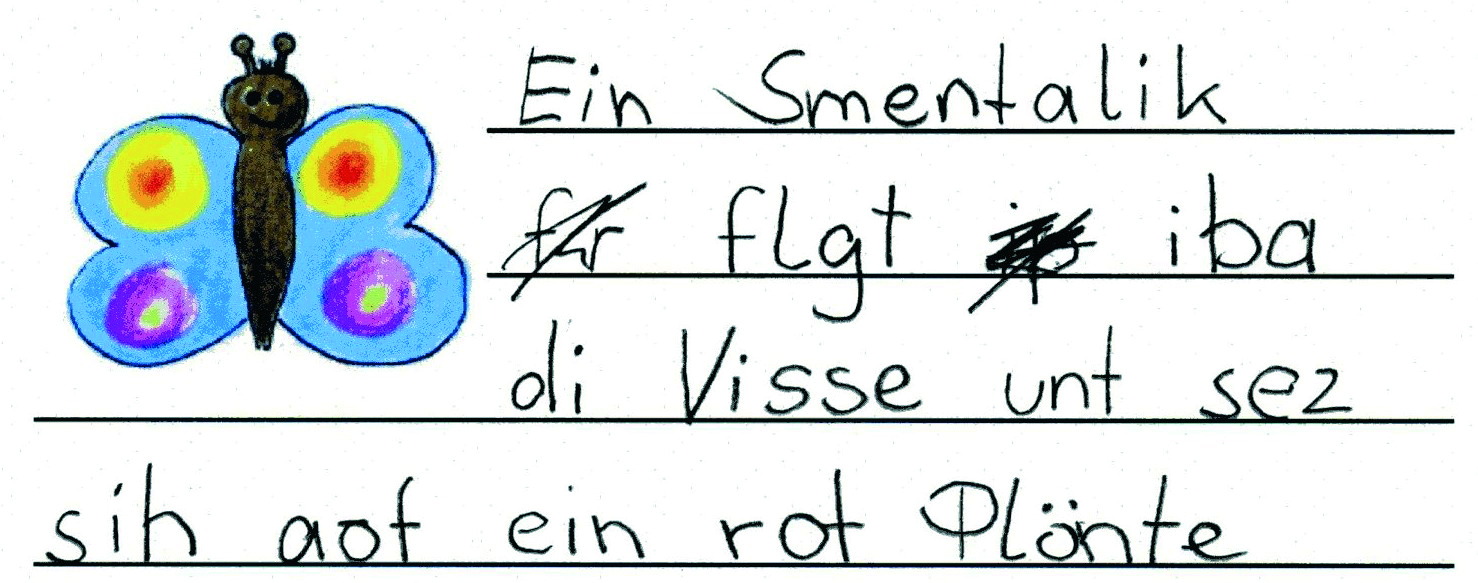 Ein Smentalik
flgt iba
di Visse unt sez
sih aof ein rot Plönte